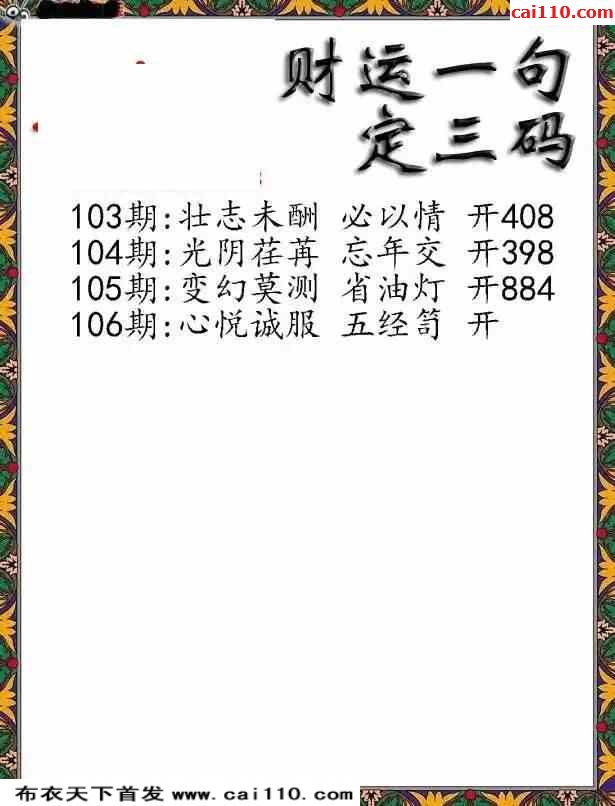 cai110.com
财运一句
定三码
103期:壮志未酬 必以情 开408
104期:光阴荏苒 忘年交 开398
105期:变幻莫测 省油灯 开884
106期:心悦诚服 五经笥 开
布衣天下首发 www.cai110.com